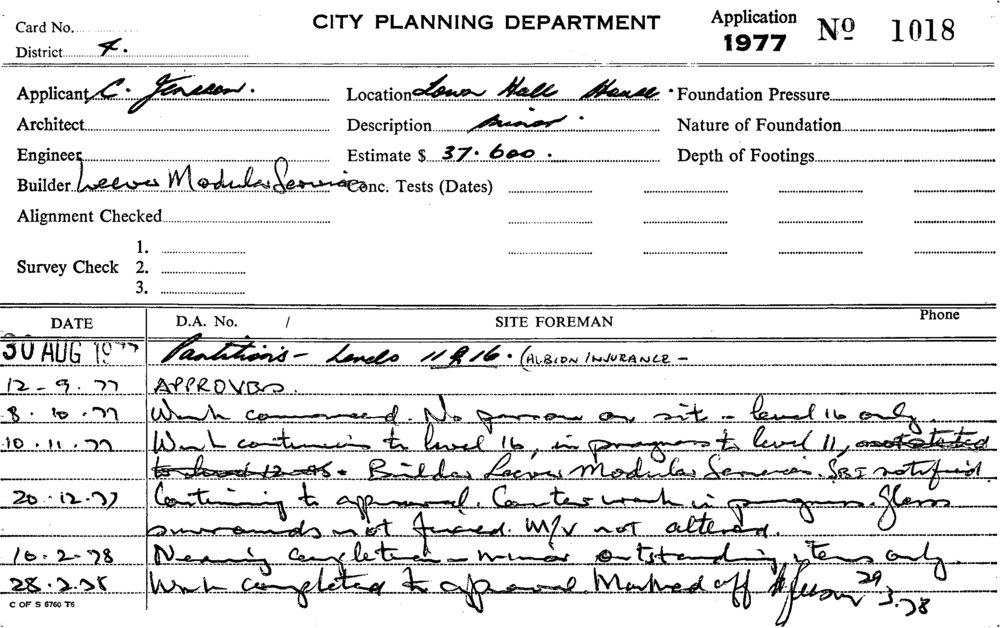 Card No.
CITY PLANNING DEPARTMENT
Application
1977
Nº 1018
District 4.
Applicant C.
Location Town Hall House.
Foundation Pressure
Architect
Description minor.
Nature of Foundation
Engineer
Estimate $ 37.600.
Depth of Footings
Builder Leever Modular Services
Conc. Tests (Dates)
Alignment Checked
1.
Survey Check 2.
3.
DATE D.A. No. / SITE FOREMAN Phone
30 AUG 1977 Partitions - Levels 11 & 16. (ALBION INSURANCE -
12-9.77 APPROVED.
8.10.77 Work commenced. No person on site - level 16 only.
10.11.77 Work continuing to level 16, in progress to level 11, not started
to level 12. Builder Leever Modular Services. SBI notified.
20.12.77 Continuing to approval. Counter work in progress. Glass
surrounds not fixed. M/V not altered.
10.2.78 Nearing completion - minor outstanding items only.
28.2.78 Work completed to approval. Marked off 29.3.78
C OF S 6760 T6